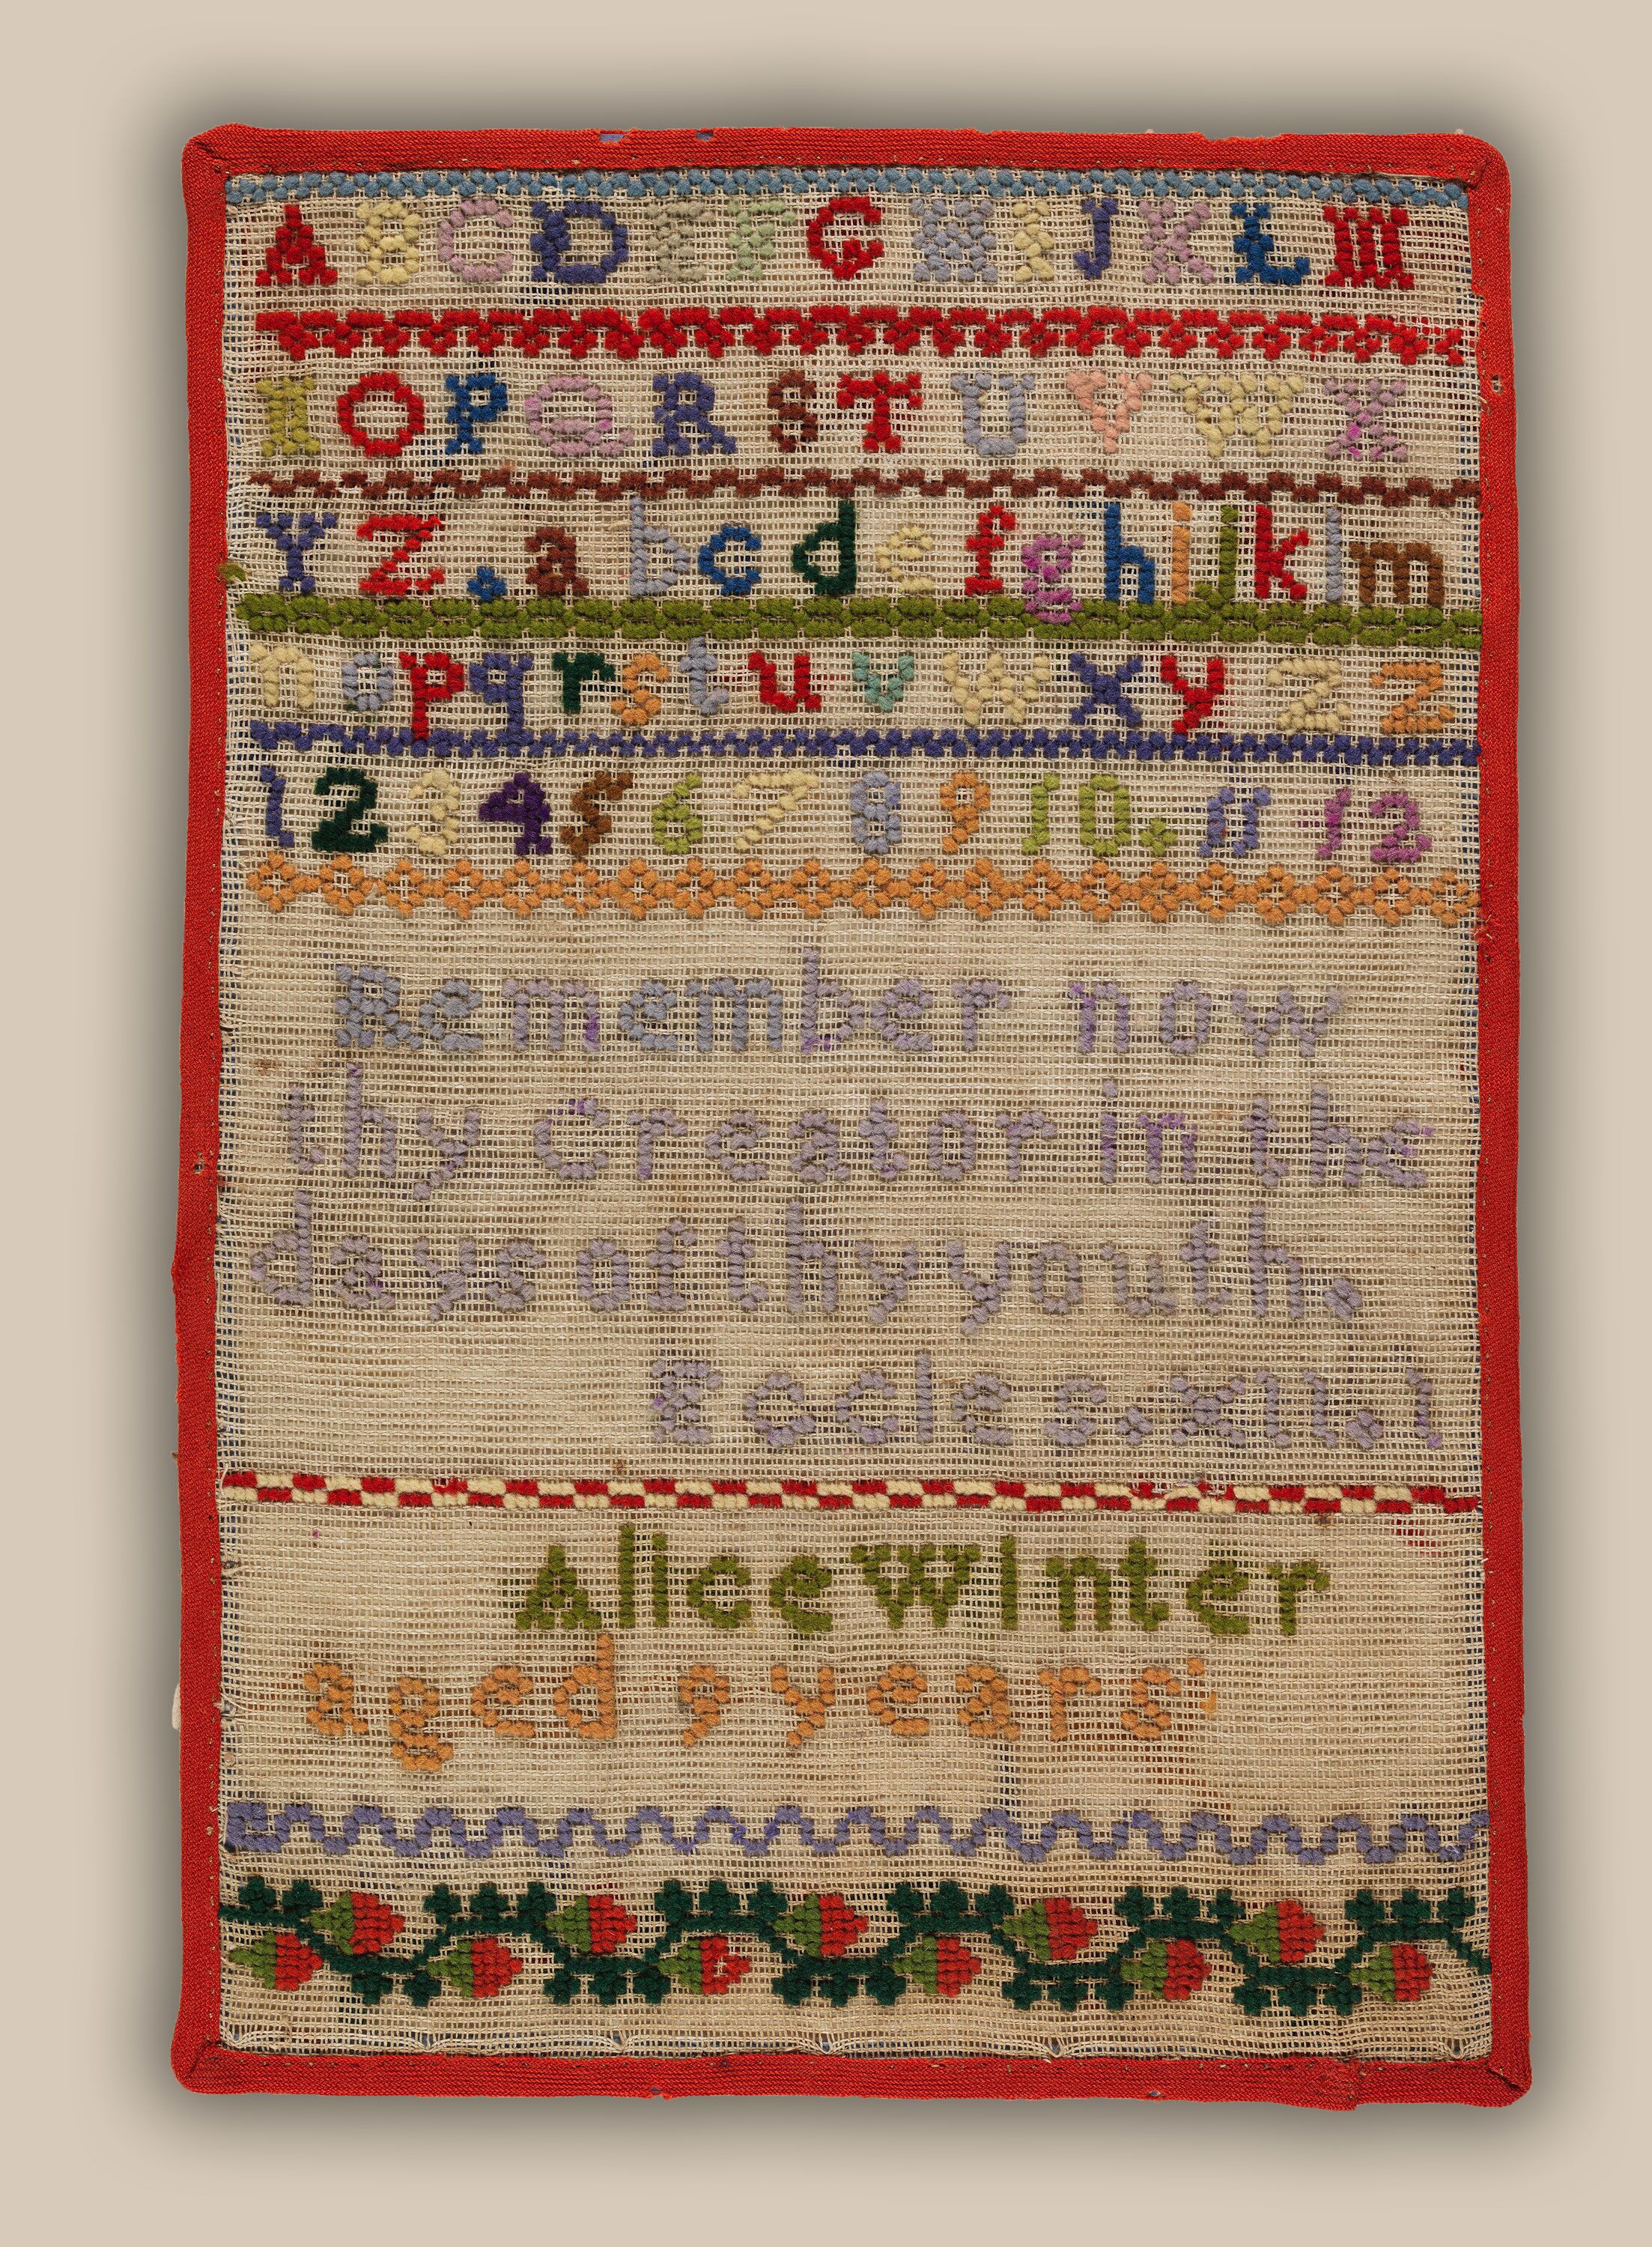 A B C D E F G H I J K L M
N O P Q R S T U V W X
Y Z . a b c d e f g h i j k l m
n o p q r s t u v w x y z z
1 2 3 4 5 6 7 8 9 10. 11 12
Remember now
thy Creator in the
days of thy youth.
Eccles. x11.1
Alice Winter
aged 9 years